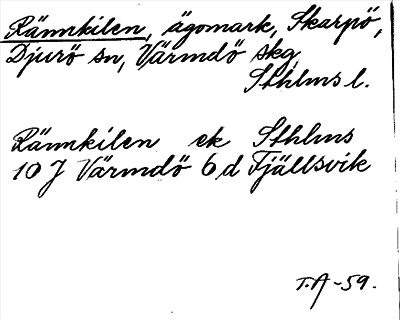 Rännkilen, ägomark, Skarpö,
Djurö sn, Värmdö skg,
Sthlms l.
Rännkilen ek Sthlms
10 J Värmdö 6 d Fjällsvik
T.A -59.